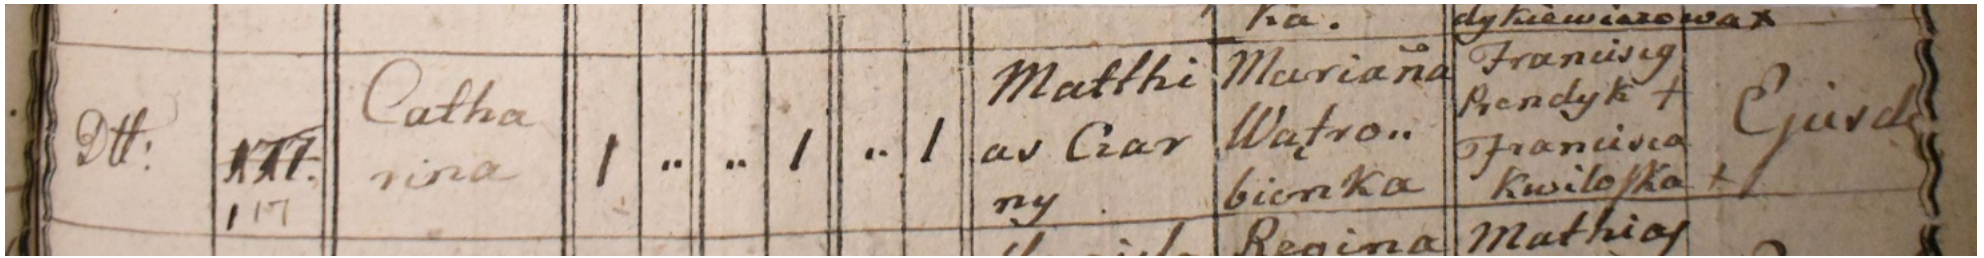 ka. dykiewiczowa x
Dtt:
117
Catha
rina
1 .. .. 1 .. 1
Matthi
as Czar
ny
Marianna
Wątro..
bionka
Francisg
Prendyk +
Francisca
Kwilofka +
Ejusd
Regina Mathias